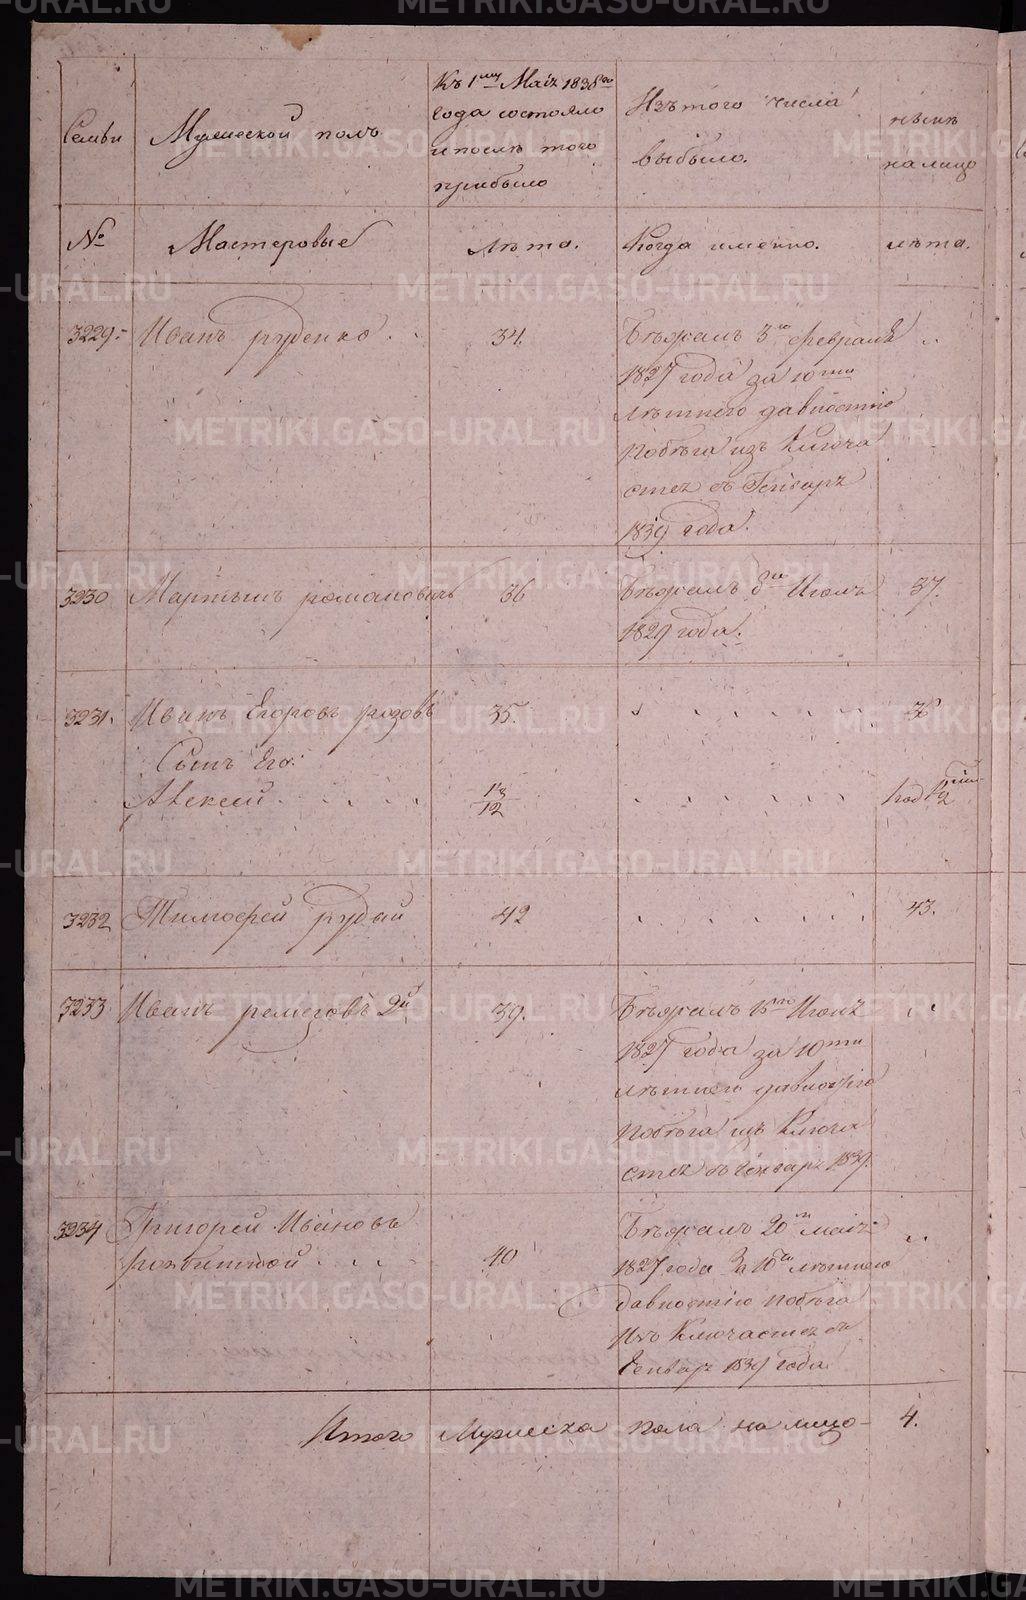 Семьи
Мужеской полъ
Къ 1му Маія 1838го
года состояло
и послѣ того
прибыло
Изъ того числа
выбыло.
нынѣ
на лицо
№
Мастеровые
лѣта.
Когда именно.
лѣта.
3229.
Иванъ руденко
34.
Бѣжалъ 3го февраля
1827 года за 10ти
лѣтнею давностію
побѣга изъ
1839 года.
3230
Мартынъ романовичь
36
Бѣжалъ Июля
1829 года.
37.
3231.
Иванъ Егоровъ розовъ
35.
36
Сынъ Его:
Алексей
12
год
3232
Тимофей рудый
42
43.
3233
Иванъ ремезовъ 2й
39.
Бѣжалъ 15го
1827 года за 10ти
лѣтнею давностію
побѣга изъ
1839.
3234
Григорей Ивановъ
40
Бѣжалъ 20го маія
1827 года за 10ти лѣтнею
давностію побѣга
Генваря 1839 года
Итого Мужеска пола на лицо
4.
METRIKI.GASO-URAL.RU